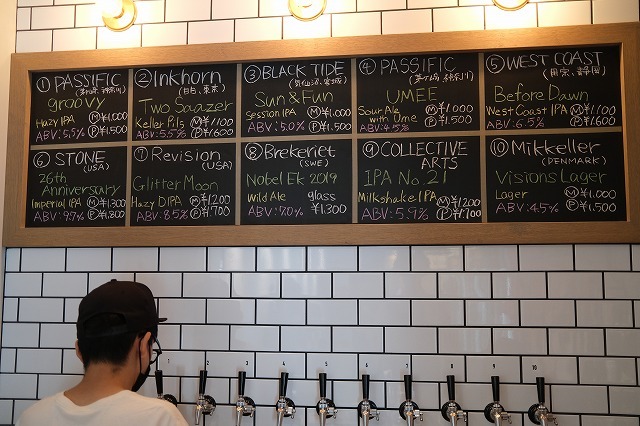 ① PASSIFIC
groovy
Hazy IPA Ⓜ ¥1,000
ABV: 5.5% Ⓟ ¥1,500
② Inkhorn
(目白、東京)
Two Saazer
Keller Pils Ⓜ ¥1100
ABV: 5.5% Ⓟ ¥1600
③ BLACK TIDE
(気仙沼、宮城)
Sun & Fun
Session IPA Ⓜ ¥1,000
ABV: 5.0% Ⓟ ¥1.500
④ PASSIFIC
(茅ヶ崎、神奈川)
UMEE
Sour Ale Ⓜ ¥1,000
with Ume Ⓟ ¥1,500
ABV: 4.5%
⑤ WEST COAST
(用宗、静岡)
Before Dawn
West Coast IPA Ⓜ ¥1100
ABV: 6.5% Ⓟ ¥1600
⑥ STONE
(USA)
26th
Anniversary
Imperial IPA Ⓜ ¥1,300
ABV: 9.7% Ⓟ ¥1,800
⑦ Revision
(USA)
Glitter Moon
Hazy DIPA Ⓜ ¥1200
ABV: 8.5% Ⓟ ¥1.700
⑧ Brekeriet
(SWE)
Nobel Ek 2019
Wild Ale glass
ABV: 7.0% ¥1.300
⑨ COLLECTIVE
ARTS
IPA No. 21
Milkshake IPA Ⓜ ¥1200
ABV: 5.9% Ⓟ ¥1.700
⑩ Mikkeller
(DENMARK)
Visions Lager
Lager Ⓜ ¥1,000
ABV: 4.5% Ⓟ ¥1,500
1 2 3 4 5 6 7 8 9 10